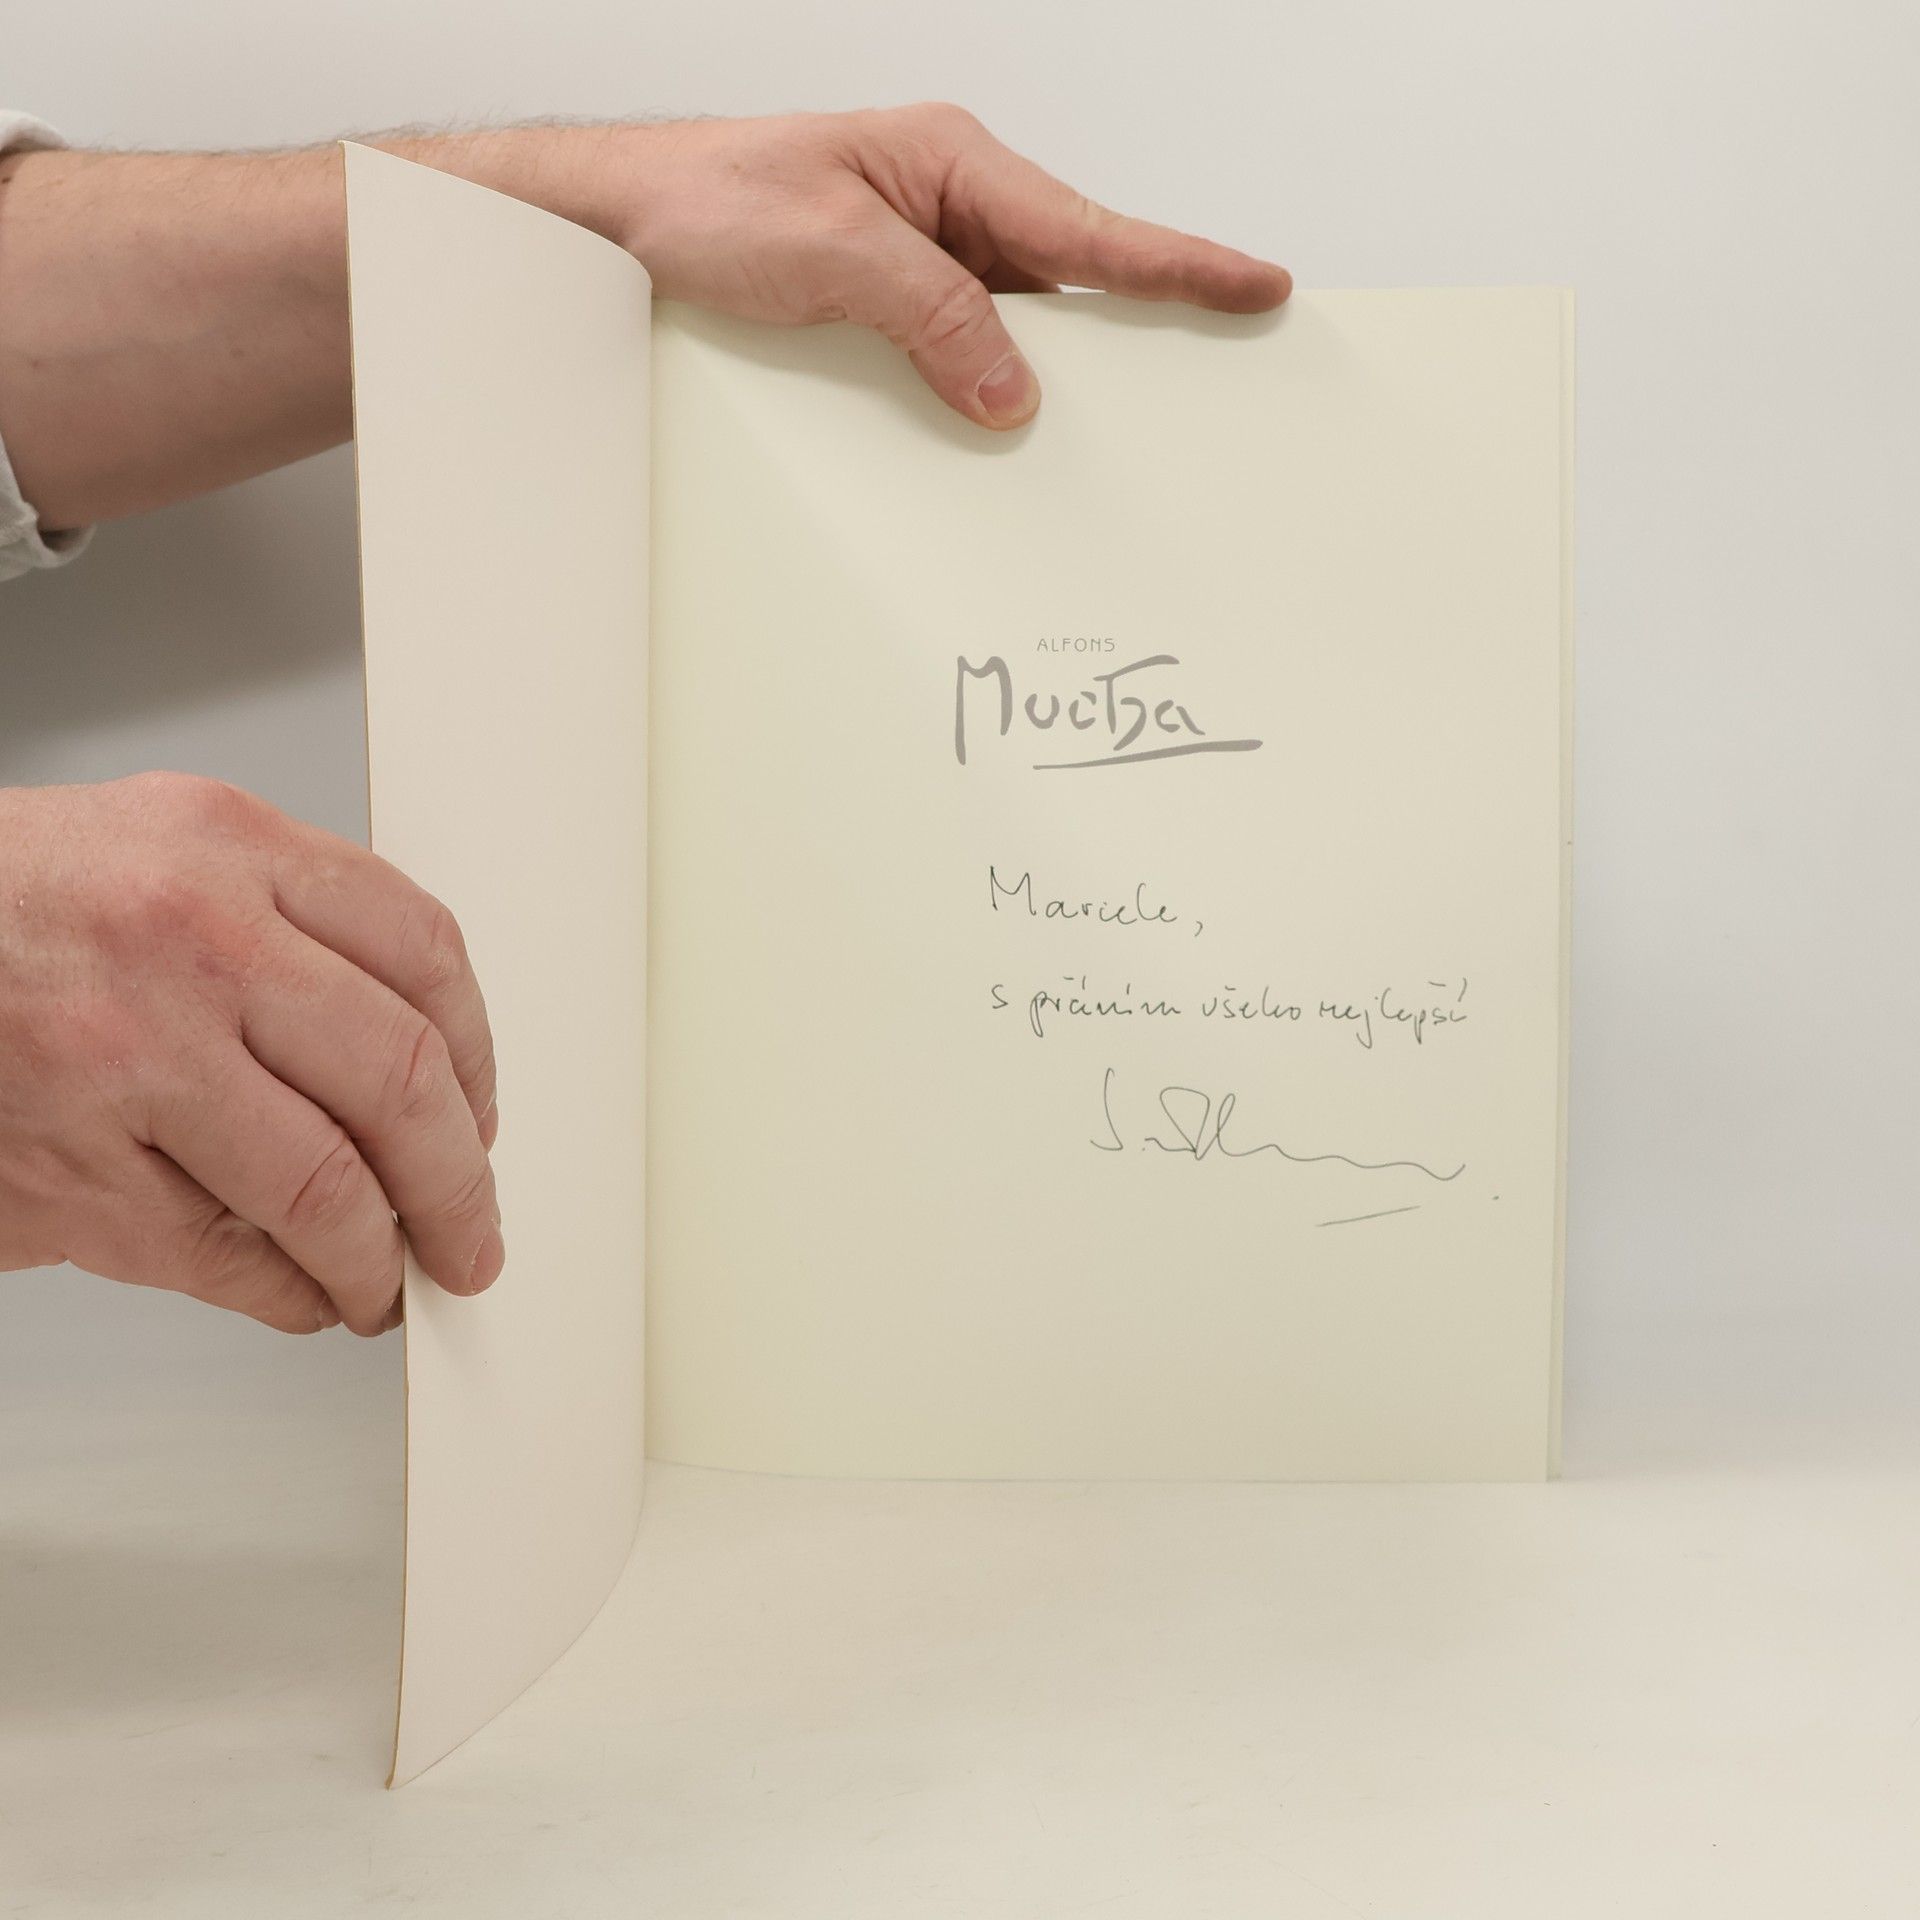 ALFONS
Mucha
Marcele,
s přáním všeho nejlepší